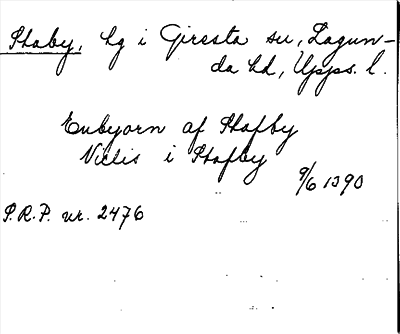 Staby, hg i Giresta sn, Lagun-
da hd, Upps. l.
Enbyorn af Stafby
Niclis i Stafby
9/6 1390
S.R.P. nr. 2476